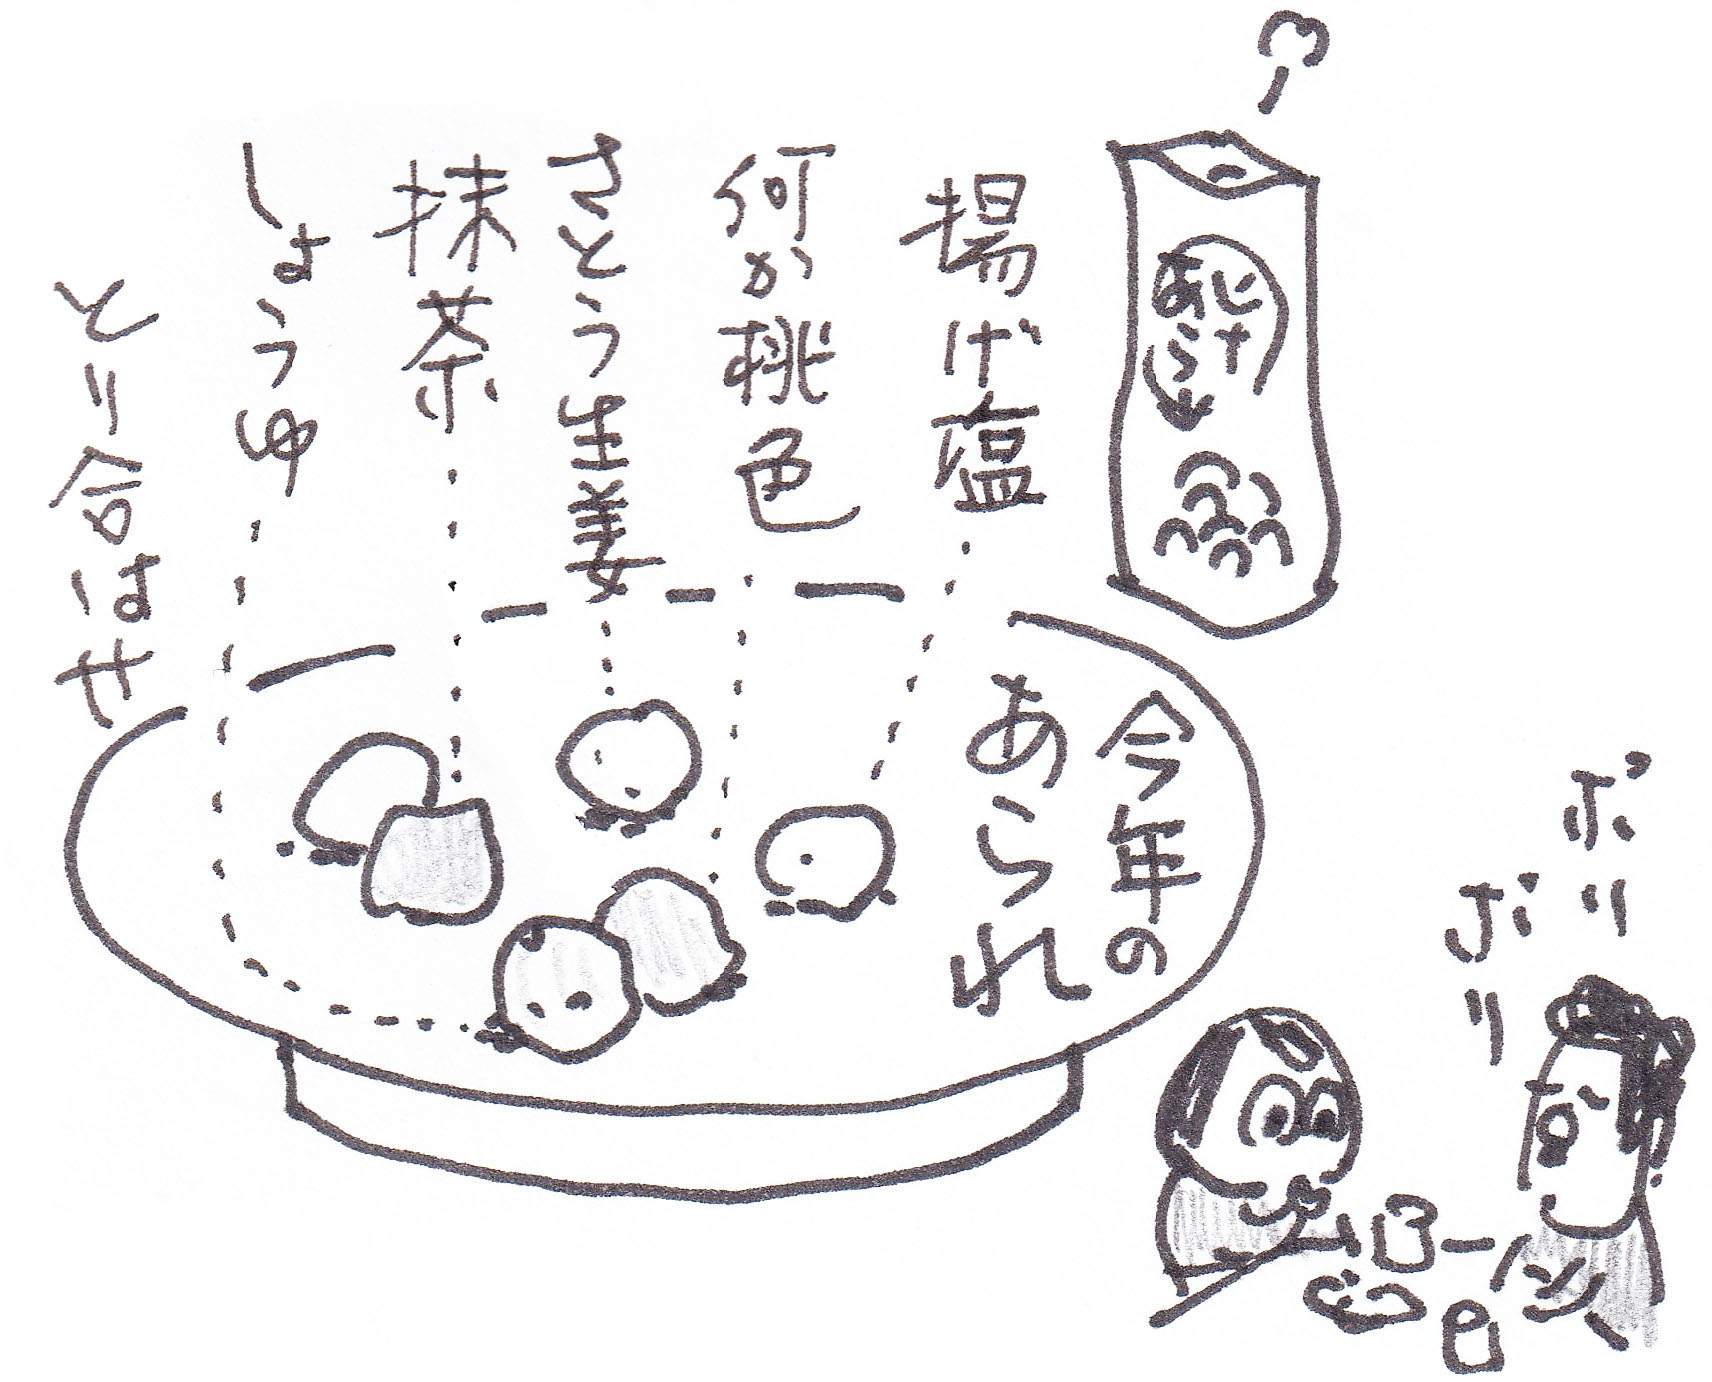 揚げ塩
何か桃色
さとう生姜
抹茶
しょうゆ
とり合はせ
今年の
あられ
ポリ
ポリ